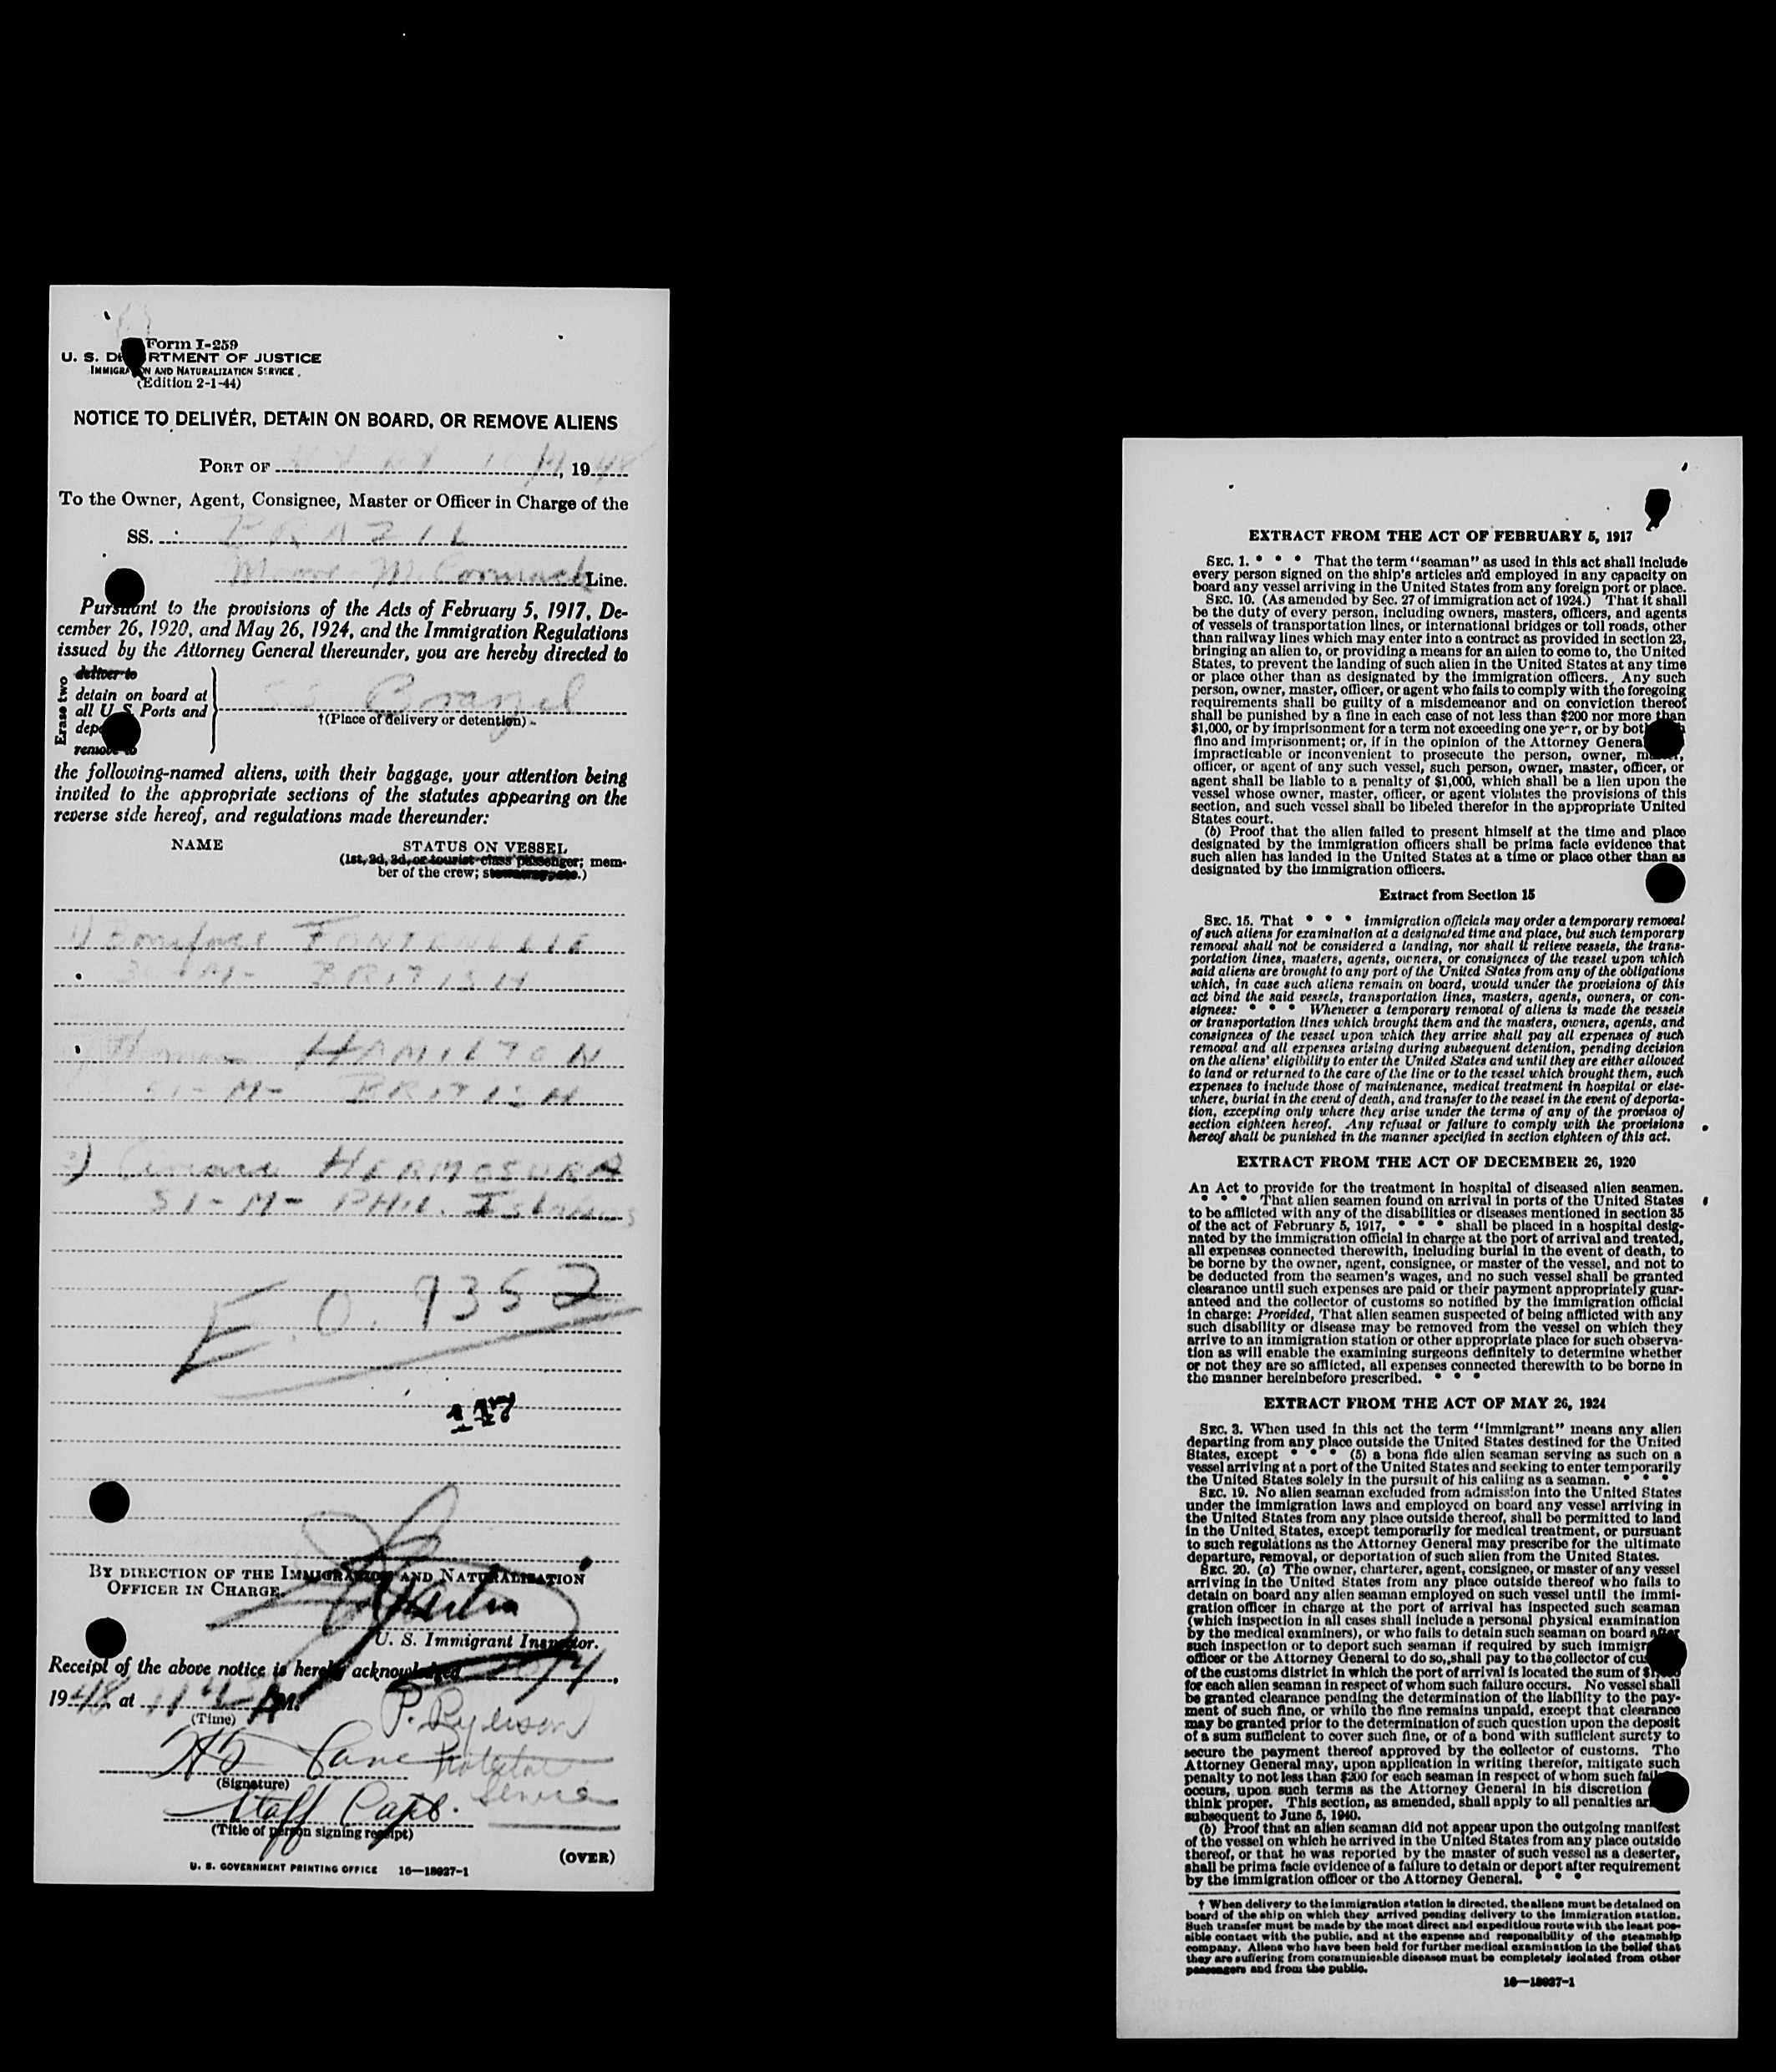 Form I-259
U. S. DEPARTMENT OF JUSTICE
IMMIGRATION AND NATURALIZATION SERVICE
(Edition 2-1-44)
NOTICE TO DELIVER, DETAIN ON BOARD, OR REMOVE ALIENS
PORT OF 14, 1948
To the Owner, Agent, Consignee, Master or Officer in Charge of the
SS. BRAZIL
Moore McCormack Line.
Pursuant to the provisions of the Acts of February 5, 1917, De-
cember 26, 1920, and May 26, 1924, and the Immigration Regulations
issued by the Attorney General thereunder, you are hereby directed to
Erase two
deliver to
detain on board at
all U. S. Ports and
remove to
SS Brazil
†(Place of delivery or detention)
the following-named aliens, with their baggage, your attention being
invited to the appropriate sections of the statutes appearing on the
reverse side hereof, and regulations made thereunder:
NAME STATUS ON VESSEL
(1st, 2d, 3d, or tourist class passenger; mem-
ber of the crew; stowaway, etc.)
1) Boniface FONTENELLE
M- BRITISH
HAMILTON
M- BRITISH
3) HERMOSURA
51-M- PHIL. Islands
E.O. 9352
117
BY DIRECTION OF THE IMMIGRATION AND NATURALIZATION
OFFICER IN CHARGE.
U. S. Immigrant Inspector.
Receipt of the above notice is hereby acknowledged
1948 at 11 A M.
(Time)
P. Ryerson
(Signature)
Staff Capt. Service
(Title of person signing receipt)
(OVER)
U. S. GOVERNMENT PRINTING OFFICE 16—18927-1
EXTRACT FROM THE ACT OF FEBRUARY 5, 1917
SEC. 1. * * * That the term "seaman" as used in this act shall include
every person signed on the ship's articles and employed in any capacity on
board any vessel arriving in the United States from any foreign port or place.
SEC. 10. (As amended by Sec. 27 of immigration act of 1924.) That it shall
be the duty of every person, including owners, masters, officers, and agents
of vessels of transportation lines, or international bridges or toll roads, other
than railway lines which may enter into a contract as provided in section 23,
bringing an alien to, or providing a means for an alien to come to, the United
States, to prevent the landing of such alien in the United States at any time
or place other than as designated by the immigration officers. Any such
person, owner, master, officer, or agent who fails to comply with the foregoing
requirements shall be guilty of a misdemeanor and on conviction thereof
shall be punished by a fine in each case of not less than $200 nor more than
$1,000, or by imprisonment for a term not exceeding one year, or by both such
fine and imprisonment; or, if in the opinion of the Attorney General
impracticable or inconvenient to prosecute the person, owner, master,
officer, or agent of any such vessel, such person, owner, master, officer, or
agent shall be liable to a penalty of $1,000, which shall be a lien upon the
vessel whose owner, master, officer, or agent violates the provisions of this
section, and such vessel shall be libeled therefor in the appropriate United
States court.
(b) Proof that the alien failed to present himself at the time and place
designated by the immigration officers shall be prima facie evidence that
such alien has landed in the United States at a time or place other than as
designated by the immigration officers.
Extract from Section 15
SEC. 15. That * * * immigration officials may order a temporary removal
of such aliens for examination at a designated time and place, but such temporary
removal shall not be considered a landing, nor shall it relieve vessels, the trans-
portation lines, masters, agents, owners, or consignees of the vessel upon which
said aliens are brought to any port of the United States from any of the obligations
which, in case such aliens remain on board, would under the provisions of this
act bind the said vessels, transportation lines, masters, agents, owners, or con-
signees: * * * Whenever a temporary removal of aliens is made the vessels
or transportation lines which brought them and the masters, owners, agents, and
consignees of the vessel upon which they arrive shall pay all expenses of such
removal and all expenses arising during subsequent detention, pending decision
on the aliens' eligibility to enter the United States and until they are either allowed
to land or returned to the care of the line or to the vessel which brought them, such
expenses to include those of maintenance, medical treatment in hospital or else-
where, burial in the event of death, and transfer to the vessel in the event of deporta-
tion, excepting only where they arise under the terms of any of the provisos of
section eighteen hereof. Any refusal or failure to comply with the provisions
hereof shall be punished in the manner specified in section eighteen of this act.
EXTRACT FROM THE ACT OF DECEMBER 26, 1920
An Act to provide for the treatment in hospital of diseased alien seamen.
* * * That alien seamen found on arrival in ports of the United States
to be afflicted with any of the disabilities or diseases mentioned in section 35
of the act of February 5, 1917, * * * shall be placed in a hospital desig-
nated by the immigration official in charge at the port of arrival and treated,
all expenses connected therewith, including burial in the event of death, to
be borne by the owner, agent, consignee, or master of the vessel, and not to
be deducted from the seamen's wages, and no such vessel shall be granted
clearance until such expenses are paid or their payment appropriately guar-
anteed and the collector of customs so notified by the immigration official
in charge: Provided, That alien seamen suspected of being afflicted with any
such disability or disease may be removed from the vessel on which they
arrive to an immigration station or other appropriate place for such observa-
tion as will enable the examining surgeons definitely to determine whether
or not they are so afflicted, all expenses connected therewith to be borne in
the manner hereinbefore prescribed. * * *
EXTRACT FROM THE ACT OF MAY 26, 1924
SEC. 3. When used in this act the term "immigrant" means any alien
departing from any place outside the United States destined for the United
States, except * * * (5) a bona fide alien seaman serving as such on a
vessel arriving at a port of the United States and seeking to enter temporarily
the United States solely in the pursuit of his calling as a seaman. * * *
SEC. 19. No alien seaman excluded from admission into the United States
under the immigration laws and employed on board any vessel arriving in
the United States from any place outside thereof, shall be permitted to land
in the United States, except temporarily for medical treatment, or pursuant
to such regulations as the Attorney General may prescribe for the ultimate
departure, removal, or deportation of such alien from the United States.
SEC. 20. (a) The owner, charterer, agent, consignee, or master of any vessel
arriving in the United States from any place outside thereof who fails to
detain on board any alien seaman employed on such vessel until the immi-
gration officer in charge at the port of arrival has inspected such seaman
(which inspection in all cases shall include a personal physical examination
by the medical examiners), or who fails to detain such seaman on board after
such inspection or to deport such seaman if required by such immigration
officer or the Attorney General to do so, shall pay to the collector of customs
of the customs district in which the port of arrival is located the sum of $1,000
for each alien seaman in respect of whom such failure occurs. No vessel shall
be granted clearance pending the determination of the liability to the pay-
ment of such fine, or while the fine remains unpaid, except that clearance
may be granted prior to the determination of such question upon the deposit
of a sum sufficient to cover such fine, or of a bond with sufficient surety to
secure the payment thereof approved by the collector of customs. The
Attorney General may, upon application in writing therefor, mitigate such
penalty to not less than $200 for each seaman in respect of whom such failure
occurs, upon such terms as the Attorney General in his discretion
think proper. This section, as amended, shall apply to all penalties arising
subsequent to June 5, 1940.
(b) Proof that an alien seaman did not appear upon the outgoing manifest
of the vessel on which he arrived in the United States from any place outside
thereof, or that he was reported by the master of such vessel as a deserter,
shall be prima facie evidence of a failure to detain or deport after requirement
by the immigration officer or the Attorney General. * * *
† When delivery to the immigration station is directed, the aliens must be detained on
board of the ship on which they arrived pending delivery to the immigration station.
Such transfer must be made by the most direct and expeditious route with the least pos-
sible contact with the public, and at the expense and responsibility of the steamship
company. Aliens who have been held for further medical examination in the belief that
they are suffering from communicable diseases must be completely isolated from other
passengers and from the public.
16—18927-1